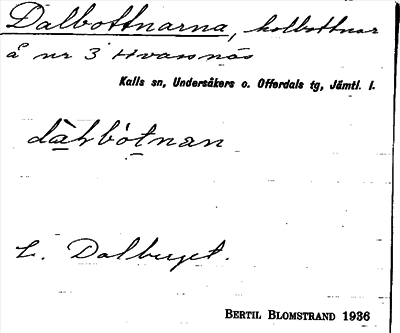 Dalbottnarna, kolbottnar
å nr 3 Hvassnäs
Kalls sn, Undersåkers o. Offerdals tg, Jämtl. l.
dàlbòtnan
L. Dalberget.
BERTIL BLOMSTRAND 1936